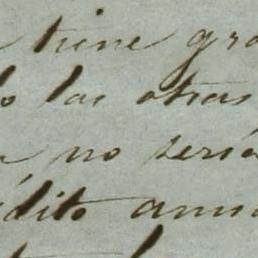 tiene gra
lo las otras
no sería
édito anu